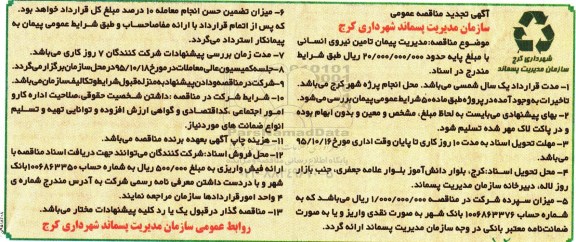 آگهی تجدید مناقصه عمومی
سازمان مدیریت پسماند شهرداری کرج
شهرداری کرج
سازمان مدیریت پسماند
موضوع مناقصه: مدیریت پیمان تامین نیروی انسانی
با مبلغ پایه حدود ۴۰/۰۰۰/۰۰۰/۰۰۰ ریال طبق شرایط
مندرج در اسناد.
۱- مدت قرارداد یک سال شمسی می‌باشد. محل انجام پرژه شهر کرج می‌باشد.
تاخیرات به‌وجود آمده در پروژه طبق ماده ۵۰ شرایط عمومی پیمان بررسی می‌شود.
۲- بهای پیشنهادی می‌بایست به لحاظ مبلغ، مشخص و معین و بدون ابهام بوده
و در پاکت لاک مهر شده تسلیم شود.
۳- مهلت تحویل اسناد به مدت ۱۰ روز کاری تا پایان وقت اداری مورخ ۹۵/۱۰/۱۶
می‌باشد.
۴- محل تحویل اسناد: کرج، بلوار دانش‌آموز بلوار علامه جعفری، جنب بازار
روز لاله، دبیرخانه سازمان مدیریت پسماند.
۵- میزان سپرده شرکت در مناقصه ۱/۰۰۰/۰۰۰/۰۰۰ ریال می‌باشد که به
حساب ۱۰۰۶۸۶۳۳۷۶ بانک شهر به صورت نقدی واریز و یا به صورت
ضمانت‌نامه معتبر بانکی در وجه سازمان مدیریت پسماند ارائه گردد.
۶- میزان تضمین حسن انجام معامله ۱۰ درصد مبلغ کل قرارداد خواهد بود.
که پس از اتمام قرارداد با ارائه مفاصاحساب و طبق شرایط عمومی پیمان به
پیمانکار استرداد می‌گردد.
۷- مدت زمان بررسی پیشنهادات شرکت کنندگان ۷ روز کاری می‌باشد.
۸- جلسه کمیسیون عالی معاملات در مورخ ۹۵/۱۰/۱۸ در محل سازمان برگزار می‌گردد.
۹- شرکت در مناقصه و دادن پیشنهاد به منزله قبول شرایط و تکالیف سازمان می‌باشد.
۱۰- شرایط شرکت در مناقصه: داشتن شخصیت حقوقی، صلاحیت اداره کار و
امور اجتماعی، کد اقتصادی و گواهی ارزش افزوده و توانایی تهیه و تسلیم
انواع ضمانت های موردنیاز.
۱۱- هزینه چاپ آگهی بعهده برنده مناقصه می‌باشد.
۱۲- محل فروش اسناد: شرکت کنندگان می‌توانند جهت دریافت اسناد مناقصه با
ارائه فیش واریزی به مبلغ ۵۰۰/۰۰۰ ریال به شماره حساب ۱۰۰۶۸۶۳۳۵۰ بانک
شهر و با دردست داشتن معرفی نامه رسمی شرکت به آدرس مندرج شماره ی
۴ واحد امور قراردادها سازمان مراجعه نمایند.
۱۳- مناقصه گذار در قبول یک یا رد کلیه پیشنهادات مختار می‌باشد.
روابط عمومی سازمان مدیریت پسماند شهرداری کرج